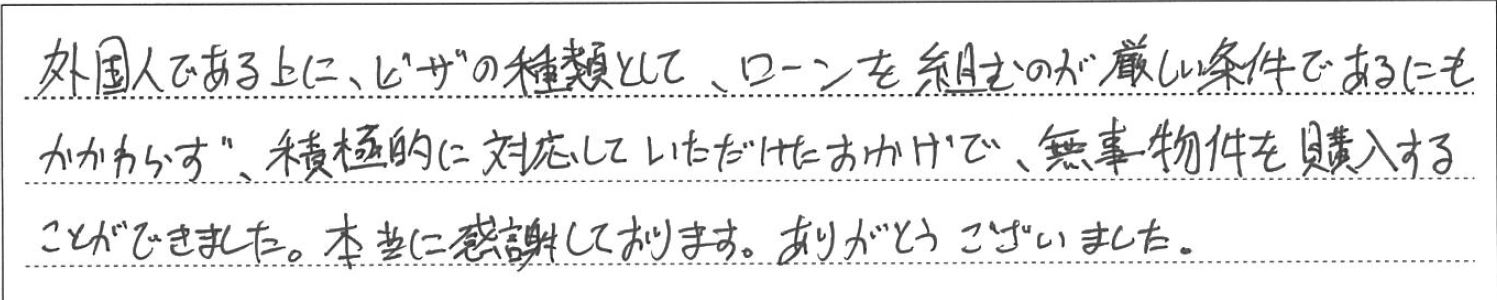 外国人である上に、ビザの種類として、ローンを組むのが厳しい条件であるにも
かかわらず、積極的に対応していただけたおかげで、無事物件を購入する
ことができました。本当に感謝しております。ありがとうございました。